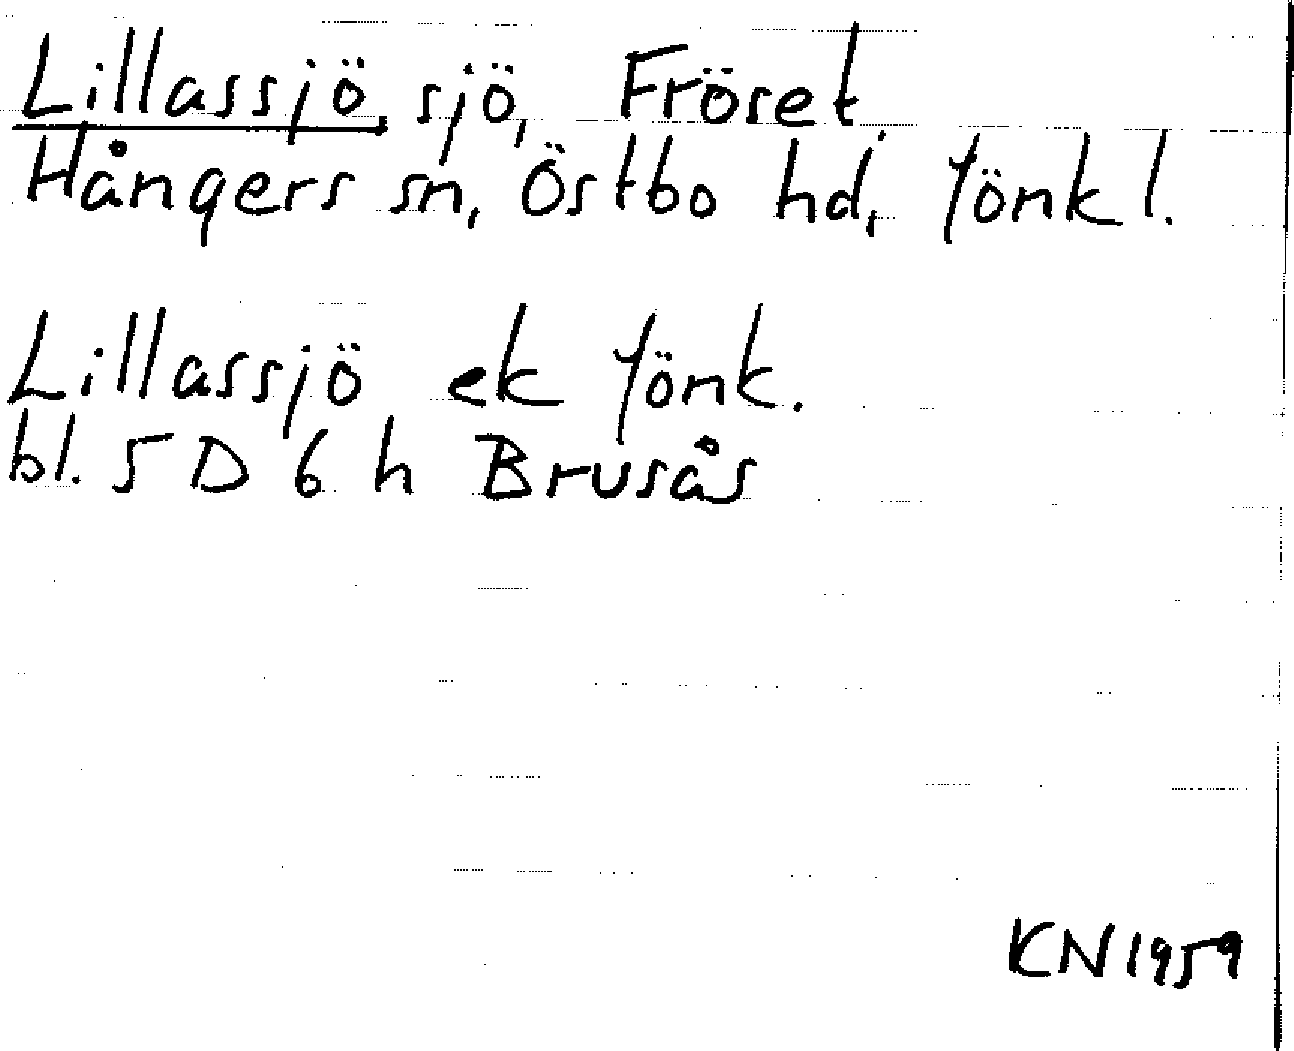 Lillassjö, sjö, Fröset,
Hångers sn, Östbo hd, Jönk l.
Lillassjö ek Jönk.
bl. 5 D 6 h Brusås
KN 1959